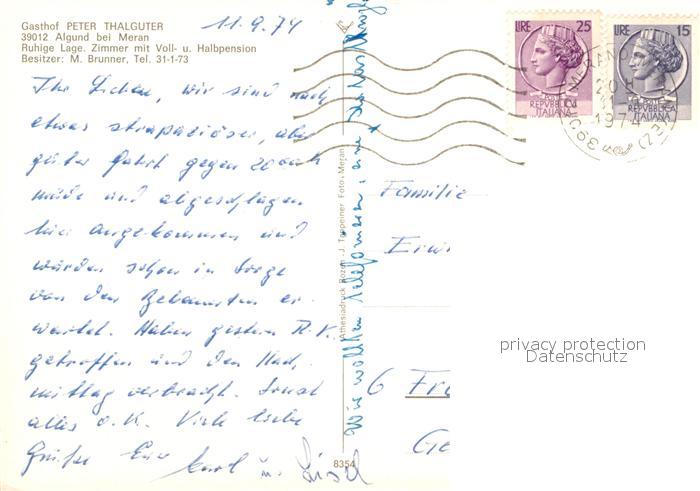 Gasthof PETER THALGUTER
39012 Algund bei Meran
Ruhige Lage. Zimmer mit Voll- u. Halbpension
Besitzer: M. Brunner, Tel. 31-1-73
11.9.74
Ihr Lieben, wir sind nach
etwas strapaziöser, aber
guter Fahrt gegen 20 00 h
müde und abgeschlagen
hier angekommen und
wurden schon in Sorge
von den Bekannten er-
wartet. Haben gestern R.K.
getroffen und den Nach-
mittag verbracht. Sonst
alles o.K. Viele liebe
Grüße Eure Karl u. Lisl
Wir wollten telefonieren, eine
Athesiadruck Bozen - J. Tappeiner Foto - Meran
8354
LIRE 25
POSTE
REPVBBLICA
ITALIANA
LIRE 15
POSTE
REPVBBLICA
ITALIANA
MERANO
1974
Familie
Erwi
6 Fra
Ge
privacy protection
Datenschutz